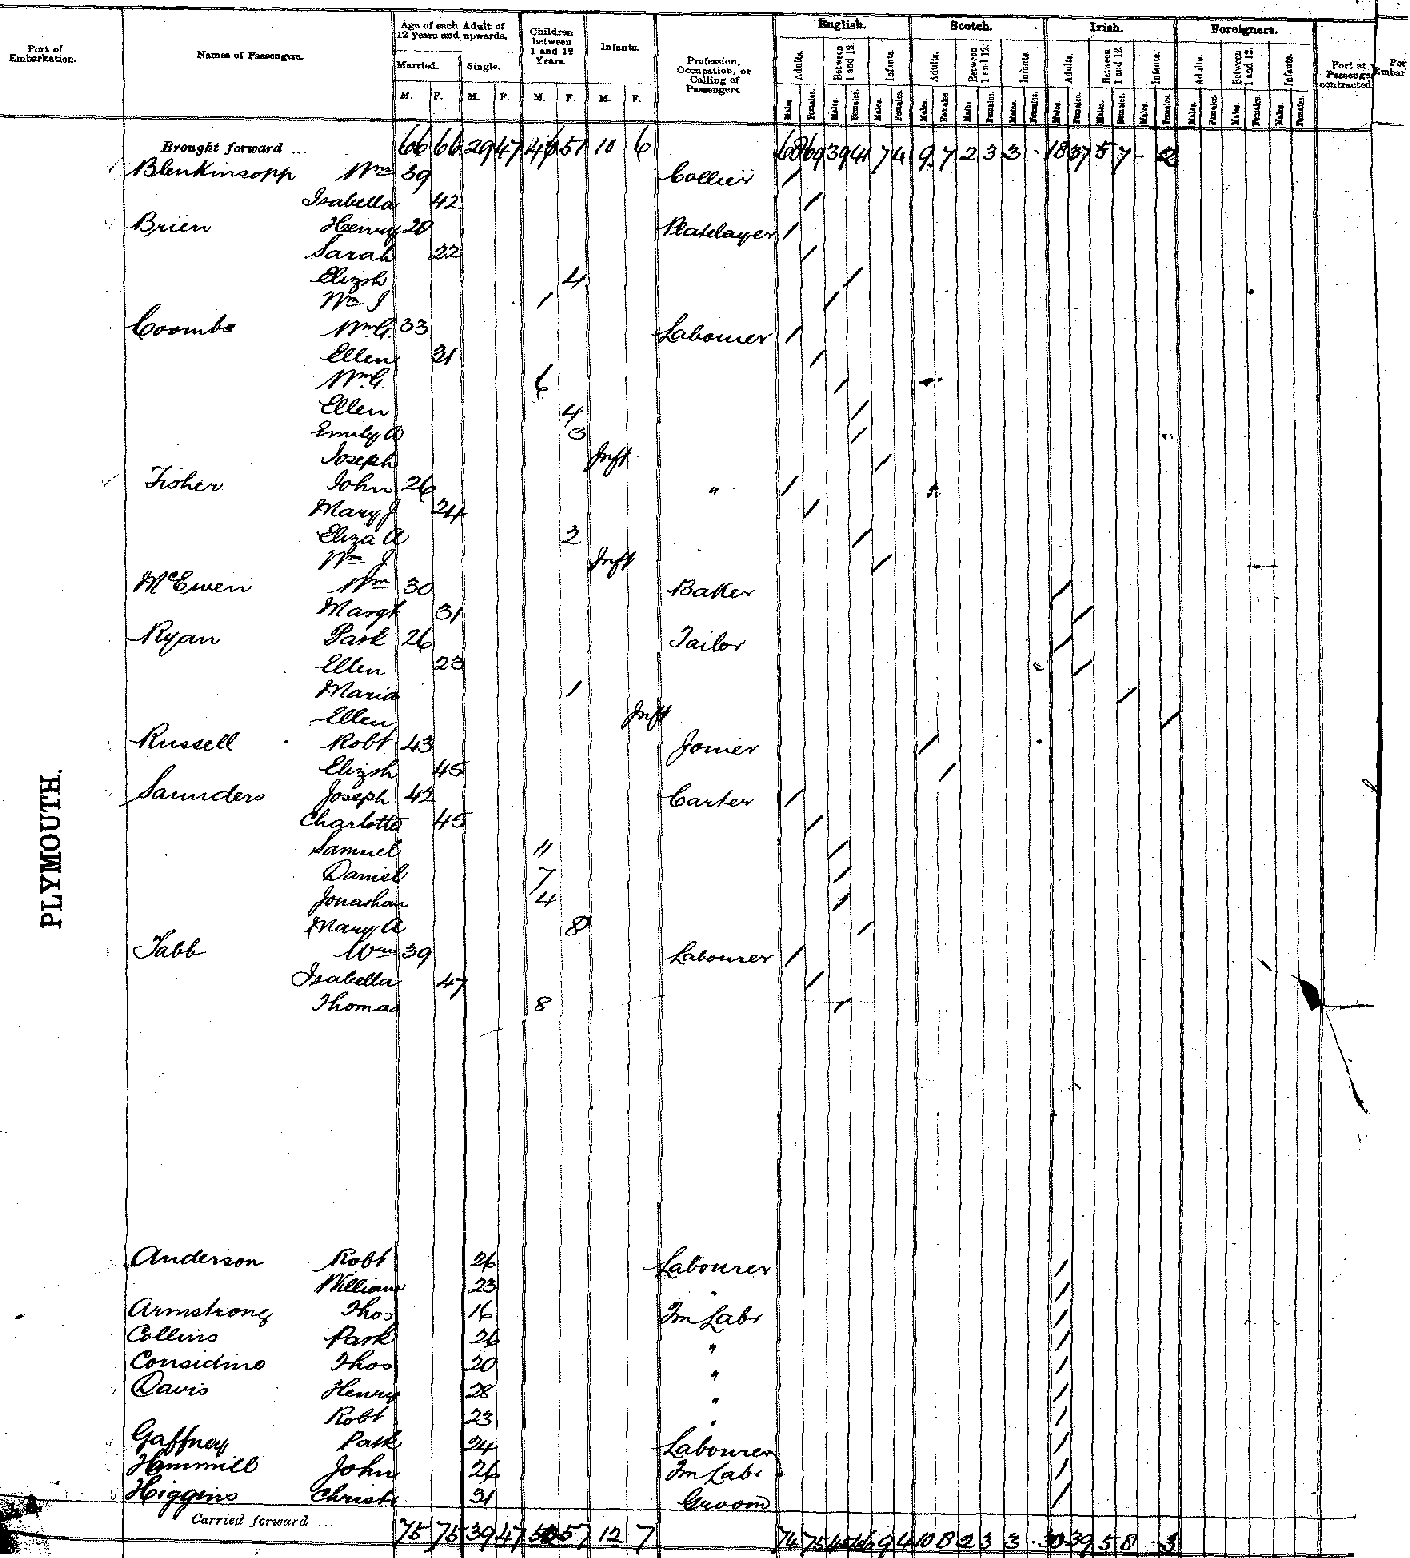 Port of Embarkation.
Names of Passengers.
Age of each Adult of 12 years and upwards.
Married. Single.
M. F. M. F.
Children between 1 and 12 Years.
M. F.
Infants.
M. F.
Profession, Occupation, or Calling of Passengers
English. Scotch. Irish. Foreigners.
Adults. Between 1 and 12. Infants. Adults. Between 1 and 12. Infants. Adults. Between 1 and 12. Infants. Adults. Between 1 and 12. Infants.
Males. Females. Males. Females. Males. Females. Males. Females. Males. Females. Males. Females. Males. Females. Males. Females. Males. Females. Males. Females. Males. Females. Males. Females.
Port at Passengers contracted
Brought forward ... 66 66 29 47 46 51 10 6 68 69 39 41 7 4 9 7 2 3 3 - 18 37 5 7 - 2
Blenkinsopp Wm 39 Collier /
Isabella 42 /
Brien Henry 29 Platelayer /
Sarah 22 /
Elizth 4 /
Wm J 1 /
Coombs Wm G. 33 Labourer /
Ellen 21 /
Wm G. 6 /
Ellen 4 /
Emily A 3 /
Joseph Inft /
Fisher John 26 " /
Mary J 24 /
Eliza A 2 /
Wm J Inft /
McEwen Wm 30 Baker /
Margt 31 /
Ryan Patk 26 Tailor /
Ellen 23 /
Maria 1 /
Ellen Inft /
Russell Robt 43 Joiner /
Elizth 45 /
Saunders Joseph 42 Carter /
Charlotte 45 /
Samuel 11 /
Daniel 7 /
Jonathan 4 /
Mary A 8 /
Tabb Wm 39 Labourer /
Isabella 47 /
Thomas 8 /
PLYMOUTH.
Anderson Robt 26 Labourer /
William 23 " /
Armstrong Thos 16 Fm Labr /
Collins Patk 26 " /
Considine Thos 20 " /
Davis Henry 28 " /
Robt 23 " /
Gaffney Patk 24 Labourer /
Hammill John 26 Fm Labr /
Higgins Christr 31 Groom /
Carried forward ... 75 75 39 47 57 12 7 74 75 9 4 10 8 2 3 3 - 30 39 5 8 - 3